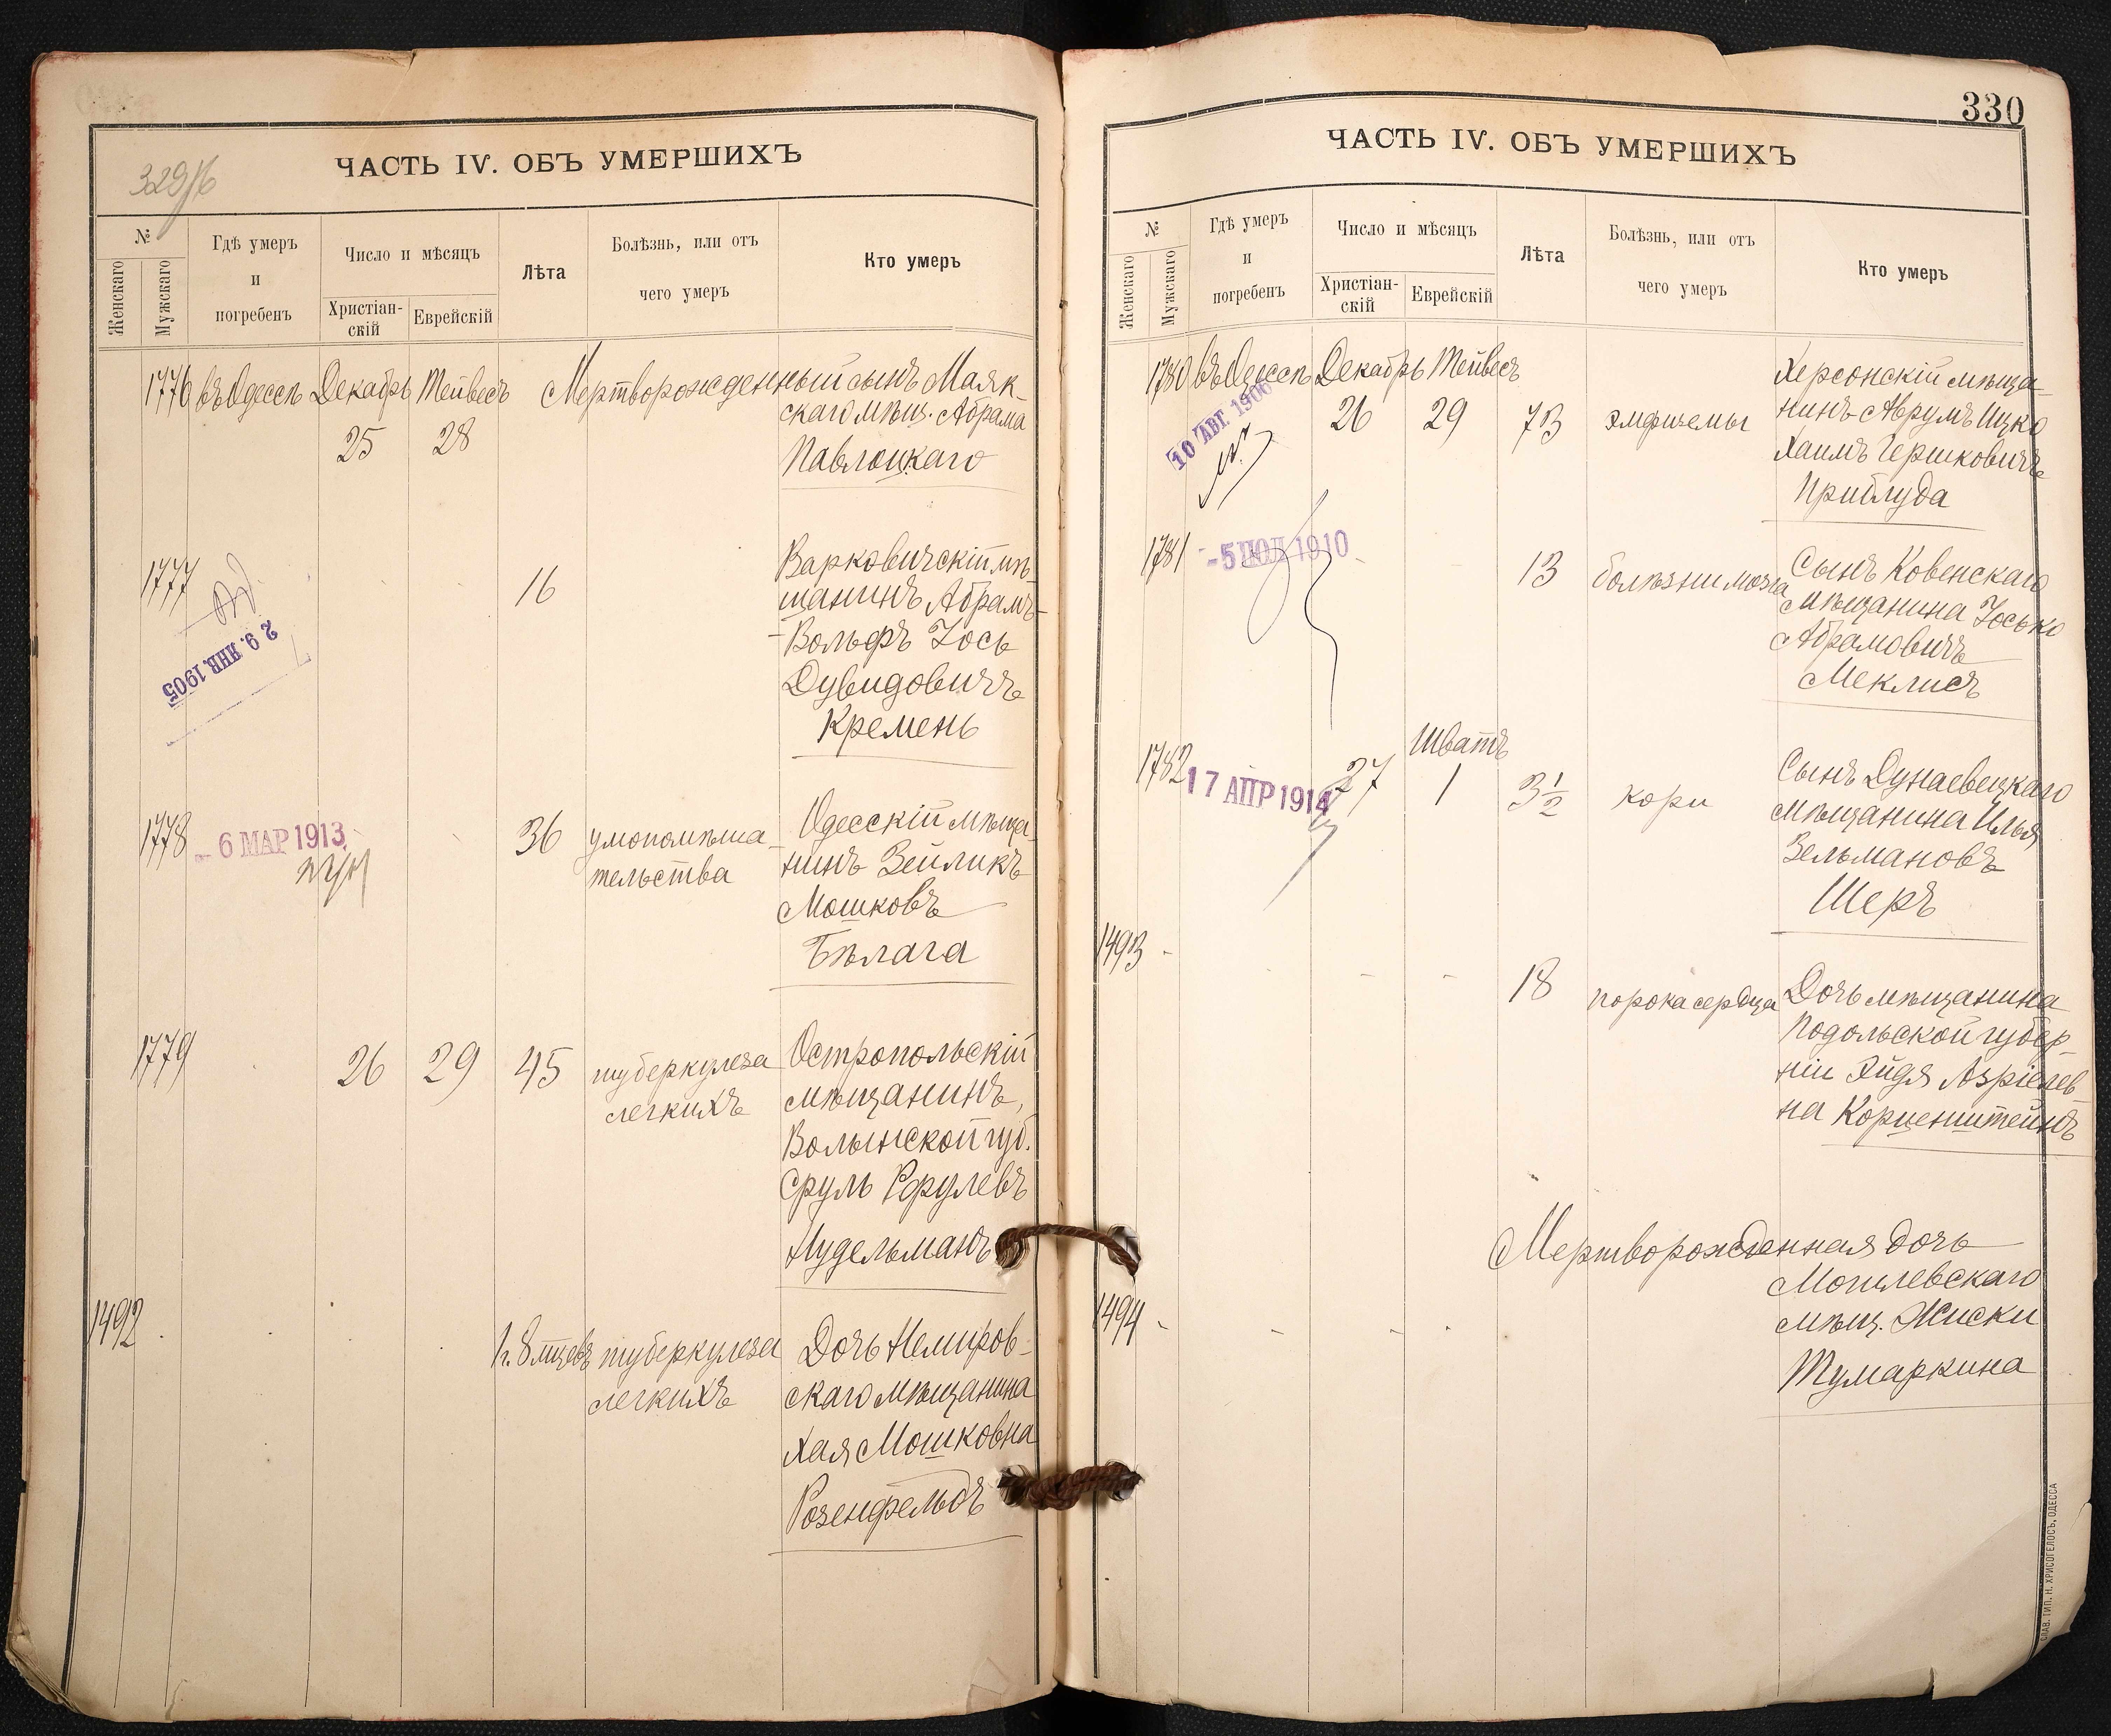 329/б
ЧАСТЬ IV. ОБЪ УМЕРШИХЪ
№
Женскаго
Мужскаго
Гдѣ умеръ
и
погребенъ
Число и мѣсяцъ
Христіан-
скій
Еврейскій
Лѣта
Болѣзнь, или отъ
чего умеръ
Кто умеръ
1776 въ Одессѣ Декабрь Тейвесъ Мертворожденный сынъ Маяк-
скаго мѣщ. Абрама
25 28
Павлоцкаго
1777
16
Варковичскій мѣ-
щанинъ Абрамъ-
-Вольфъ Іось
Дувидовичъ
Кремень
29. ЯНВ. 1905
1778
- 6 МАР 1913
36
умопомѣша-
тельства
Одесскій мѣща-
нинъ Зейликъ
Мошковъ
Бѣлага
1779
26 29 45
туберкулеза
легкихъ
Остропольскій
мѣщанинъ,
Волынской губ.
Сруль Рефулевъ
Нудельманъ
1492
1 г. 8 мцевъ
туберкулеза
легкихъ
Дочь Немиров-
скаго мѣщанина
Хая Мошковна
Розенфельдъ
330
ЧАСТЬ IV. ОБЪ УМЕРШИХЪ
№
Женскаго
Мужскаго
Гдѣ умеръ
и
погребенъ
Число и мѣсяцъ
Христіан-
скій
Еврейскій
Лѣта
Болѣзнь, или отъ
чего умеръ
Кто умеръ
1780 въ Одессѣ Декабрь Тейвесъ
10 АВГ. 1906
26 29 73 эмфиземы
Херсонскій мѣща-
нинъ Аврумъ Ицко
Хаимъ Гершковичъ
Приблуда
1781
-5 ІЮЛ 1910
13
болѣзни мозга
Сынъ Ковенскаго
мѣщанина Іосько
Абрамовичъ
Меклисъ
1782
17 АПР 1914
27
Шватъ
1
3 1/2
кори
Сынъ Дунаевецкаго
мѣщанина Илья
Зельмановъ
Шеръ
1493
18
порока сердца
Дочь мѣщанина
Подольской губер-
ніи Эйдя Азріелев-
на Корценштейнъ
1494
Мертворожденная дочь
Могилевскаго
мѣщ. Жиски
Тумаркина
СЛАВ. ТИП. Н. ХРИСОГЕЛОСЪ, ОДЕССА